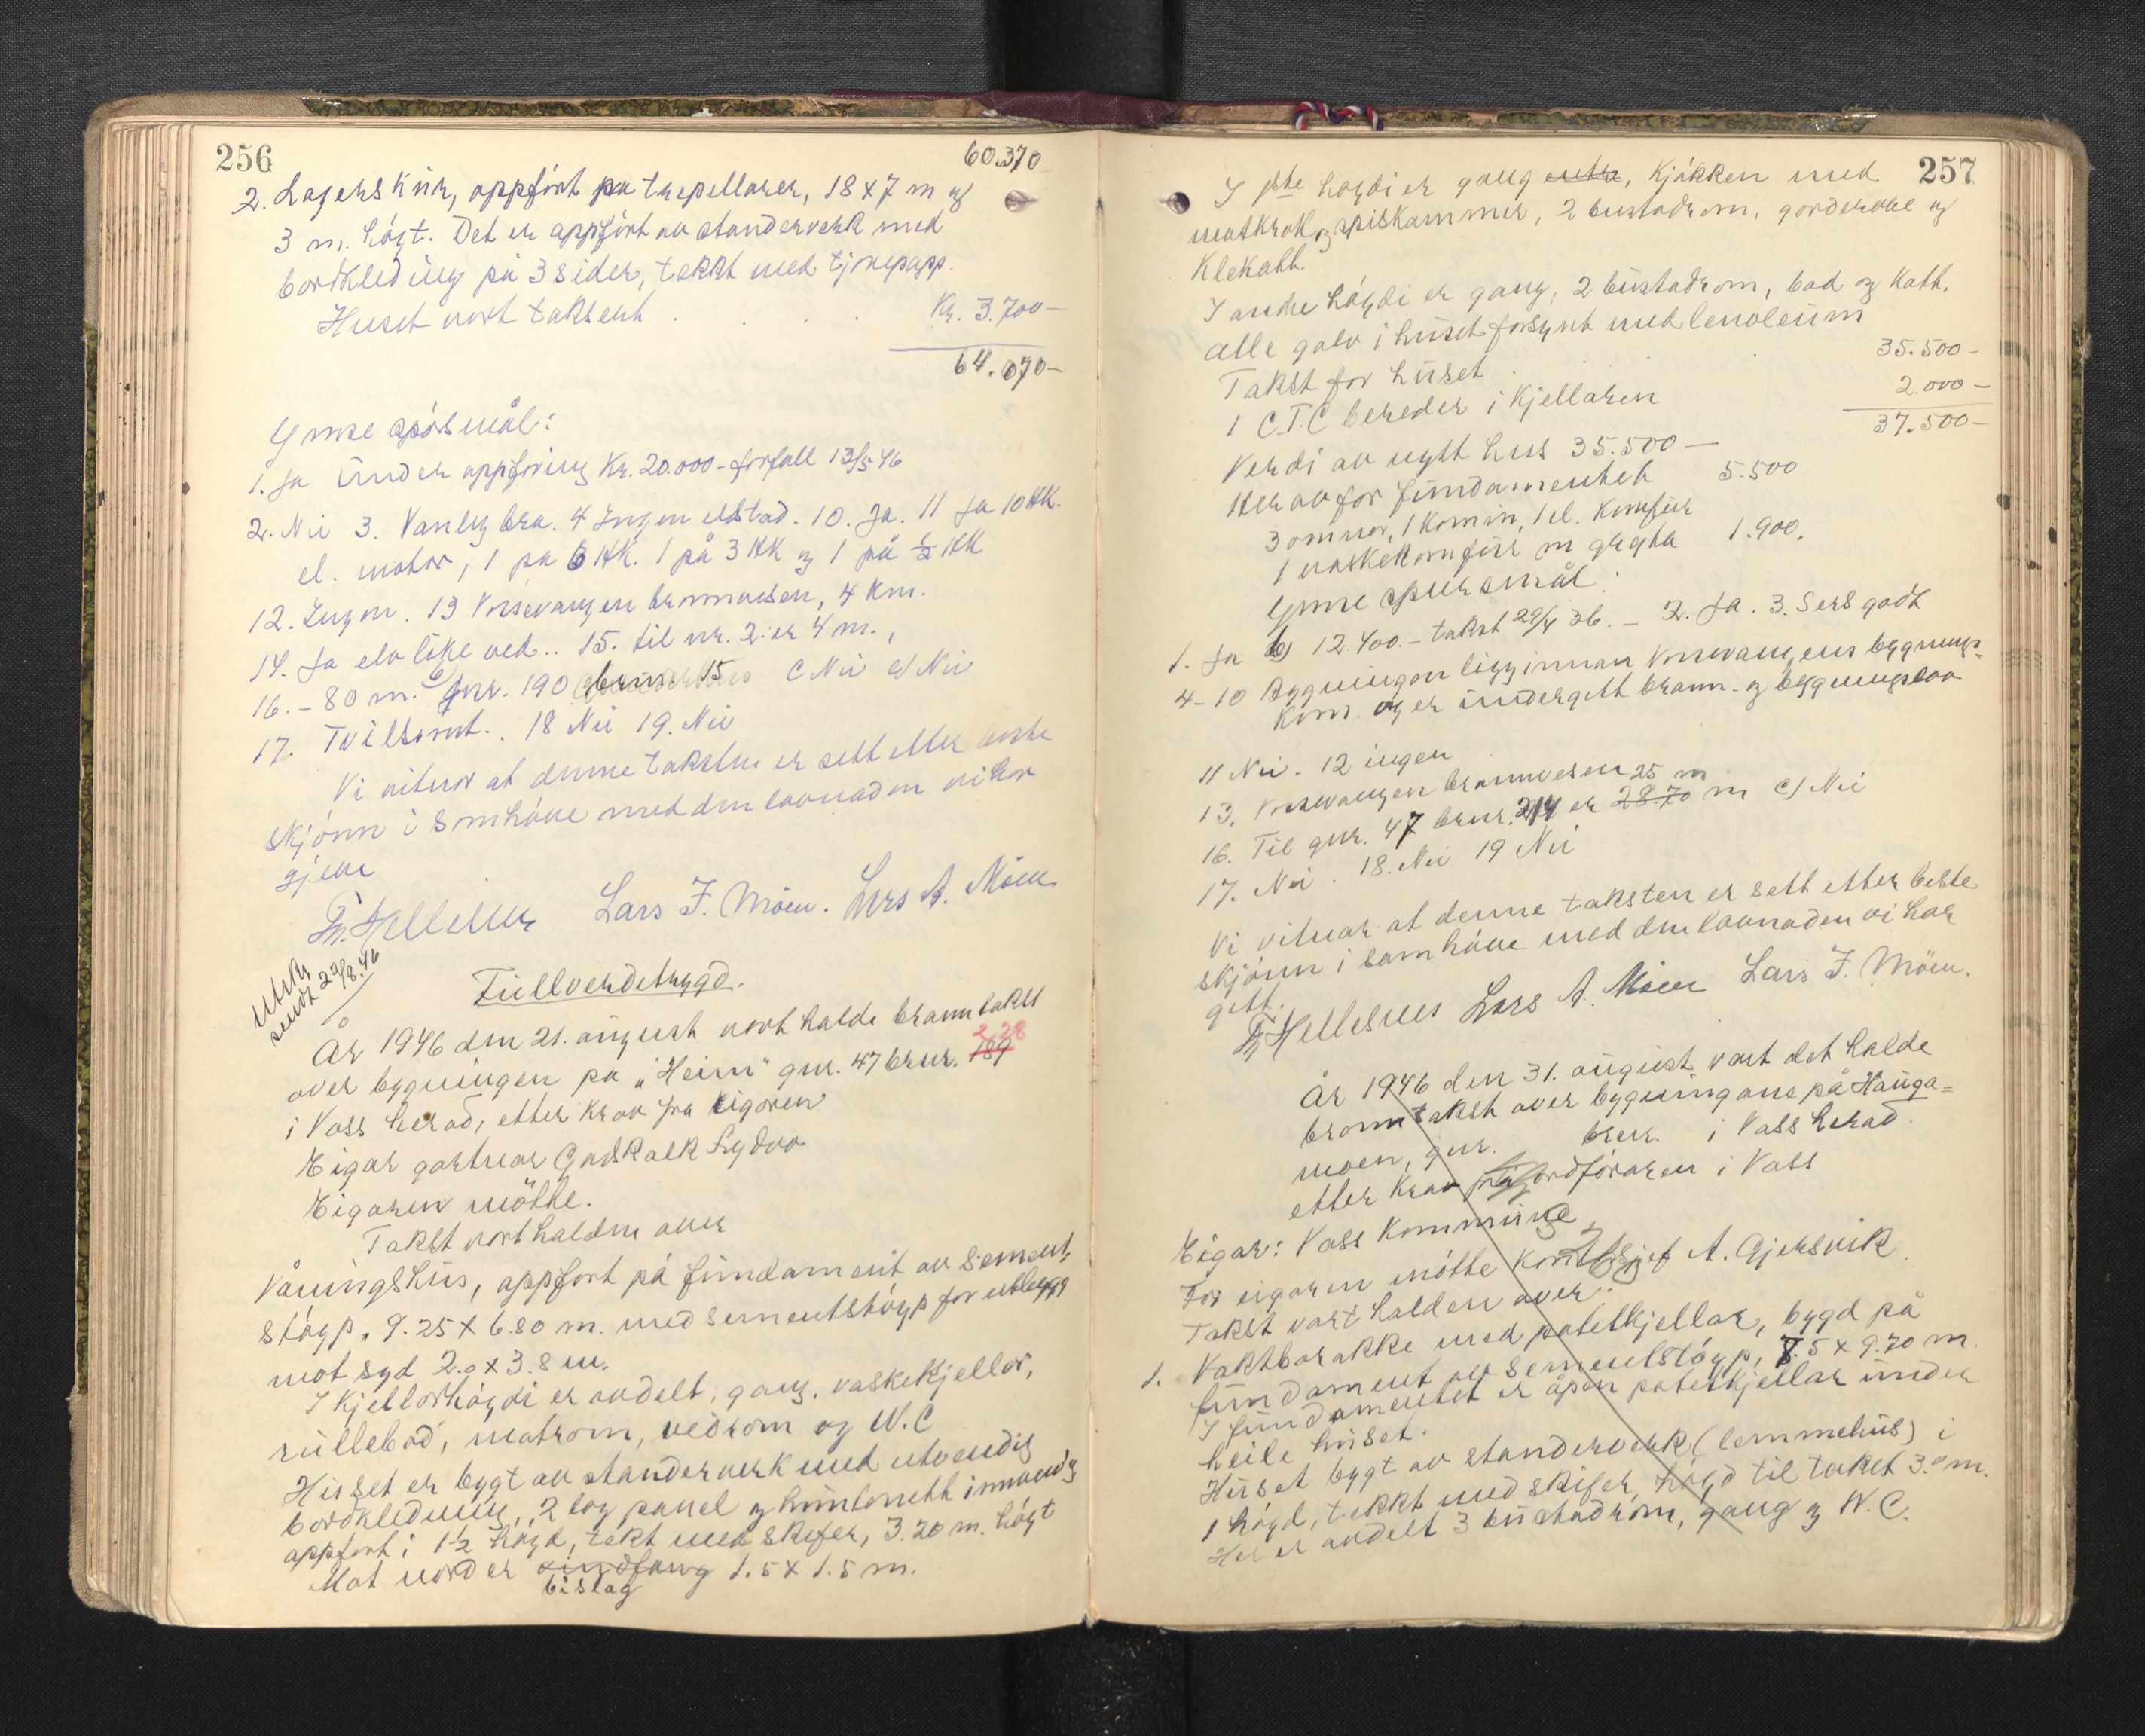 256
60.370
2. Lagerskúr, oppfört på trepellarer, 18 x 7 m og
3 m. högt. Det er oppfört av standerverk med
bordkleding på 3 sider, tekkt med tjørepapp.
Huset vart taksert . . . Kr. 3.700 —
64.070 —
Ymse spörsmål:
1. Ja under oppföring Kr. 20.000 - forfall 13/5 46
2. Nei 3. Vanleg bra. 4 Ingen eldstad. 10. Ja. 11 Ja 10 HK.
el. motor, 1 på 6 HK. 1 på 3 HK og 1 på ½ HK
12. Ingen. 13 Vossevangen brannvesen, 4 km.
14. Ja elv like ved.. 15. til nr. 2 er 4 m.,
16. - 80 m. b) gnr. 190 brnr 15 C Nei e) Nei
17. Tvilsomt.. 18 Nei 19. Nei
Vi vitnar at denne taksten er sett etter beste
skjönn i samhöve med den lovnaden vi har
gjeve
Lars J. Möen. Lars A. Möen
Utskr
sendt 22/8.46
Fullverdetrygd.
År 1946 den 21. august vart halde branntakst
over bygningen på "Heim" gnr. 47 brnr. 189 228
i Voss herad, etter krav fra eigaren
Eigar gartnar Godskalk Sydvo
Eigaren mötte.
Takst vart halden over
Våningshus, oppfort på fundament av sement-
stöyp. 9.25 x 6.80 m. med sementstöyp for utbygg
mot syd 2.0 x 3.8 m.
I kjellarhögdi er avdelt; gang, vaskekjellar,
rullebod, matrom, vedrom og W.C
Huset er bygt av standerverk med utvendig
bordkledning, 2 lag panel og huntonett innvendig
oppfort i 1½ högd, tekt med skifer, 3.20 m. högt
Mot nord er vindfang 1.5 x 1.5 m.
bislag
257
I 1ste högdi er gang entre, kjökken med
matkrok og spiskammer, 2 bustadrom, garderobe og
klekott.
I andre högdi er gang, 2 bustadrom, bad og kott.
alle golv i huset forsynt med lenoleum
Takst for huset . 35.500 -
1 C.T.C bereder i kjellaren 2.000 -
37.500 -
Verdi av nytt hus 35.500 —
Herav for fundamentet 5.500
3 omnar, 1 komin, 1 el. komfur
1 vaskekomfur m gryta 1.900,
Ymse spursmål:
1. Ja b) 12.400. - takst 29/4 36. - 2. Ja. 3. Sers godt
4-10 Bygningen ligg innan Vossevangens bygnings-
kom. og er undergitt brann- og bygningslov
11 Nei - 12 ingen
13. Vossevangen brannvesen 25 m
16. Til gnr. 47 brnr. 214 er 28.70 m c) Nei
17. Nei. 18. Nei 19 Nei
Vi vitnar at denne taksten er sett etter beste
skjönn i samhöve med den lovnaden vi har
gitt.
Lars A. Möen Lars J. Möen.
År 1946 den 31. august vart det halde
branntakst over bygningane på Hauga-
moen, gnr. brnr. i Voss herad.
etter krav frå ordföraren i Voss
Eigar: Voss Kommune
For eigaren mötte A. Gjersvik
Takst vart halden over:
1. Vaktbarakke med potetkjellar, bygd på
fundament av sementstöyp, 7.5 x 9.70 m.
I fundamentet er åpen potetkjellar under
heile huset.
Huset bygt av standerverk (lemmehus) i
1 högd, tekkt med skifer, högd til taket 3.0 m.
Her er avdelt 3 bustadrom, gang og W.C.